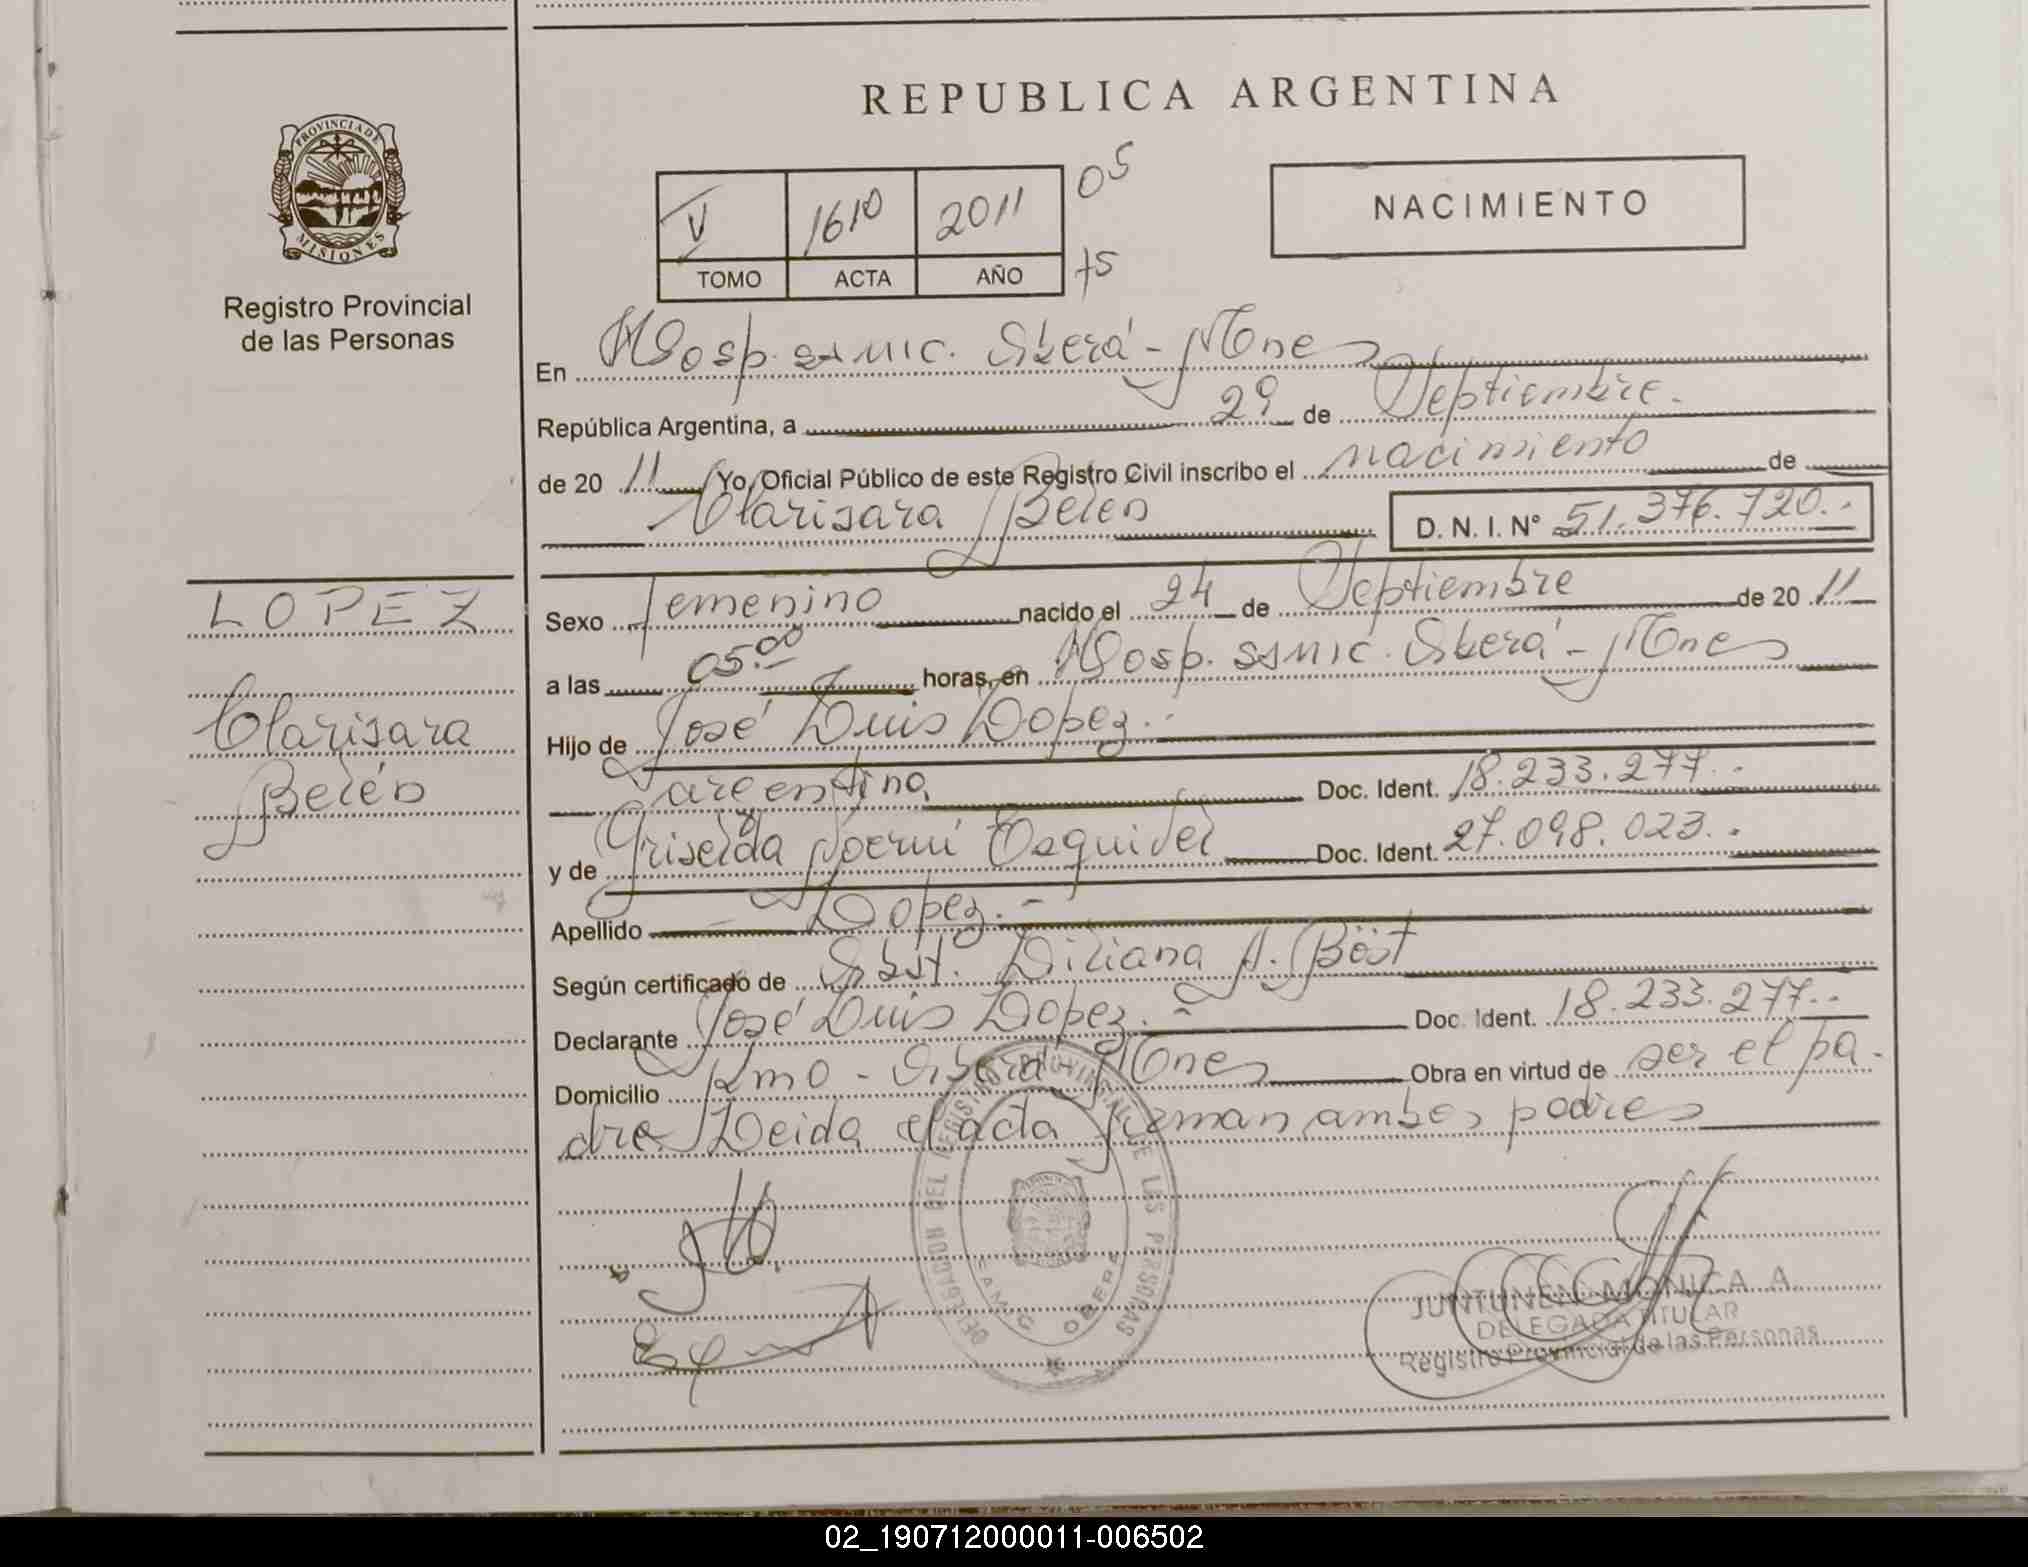 REPUBLICA ARGENTINA
PROVINCIA DE
MISIONES
Registro Provincial
de las Personas
V 1610 2011 05
TOMO ACTA AÑO 75
NACIMIENTO
En Hosp. ssmic. Oberá - Mnes
República Argentina, a 29 de Septiembre.
de 20 11 Yo, Oficial Público de este Registro Civil inscribo el nacimiento de
Clarisara Belen D. N. I. N° 51.376.720..
LOPEZ
Clarisara
Belén
Sexo femenino nacido el 24 de Septiembre de 20 11
a las 05.00 horas, en Hosp. ssmic. Oberá - Mnes
Hijo de José Luis Lopez.-
argentino Doc. Ident. 18.233.277..
y de Griselda Noemi Esquivel Doc. Ident. 27.098.023..
Apellido - Lopez.-
Según certificado de Obst. Liliana A. Böst
Declarante José Luis Lopez.- Doc. Ident. 18.233.277..
Domicilio Kmo - Oberá - Mnes Obra en virtud de ser el pa-
dre. Leida el acta firman ambos padres
DELEGACION DEL REGISTRO PROVINCIAL DE LAS PERSONAS
OBERA
JUNTUNEN MONICA A.
DELEGADA TITULAR
Registro Provincial de las Personas
02_190712000011-006502